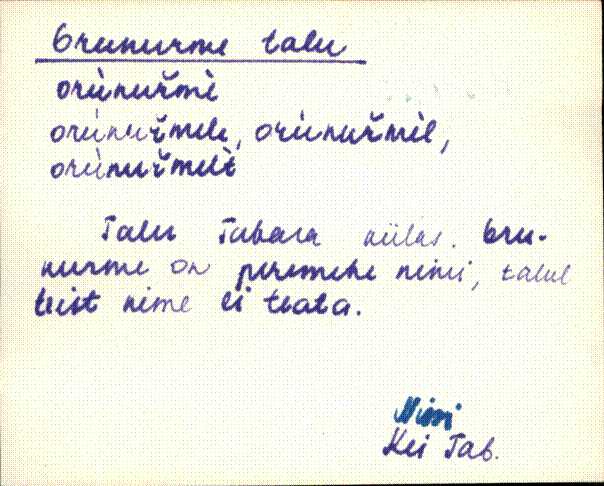 Orunurme talu
orùnuřmè
orùnuřmele, orùnuřmèl,
orùnuřmelt
Talu Tabara külas. Oru-
nurme on peremehe nimi, talul
teist nime ei teata.
Nissi
Kei Tab.